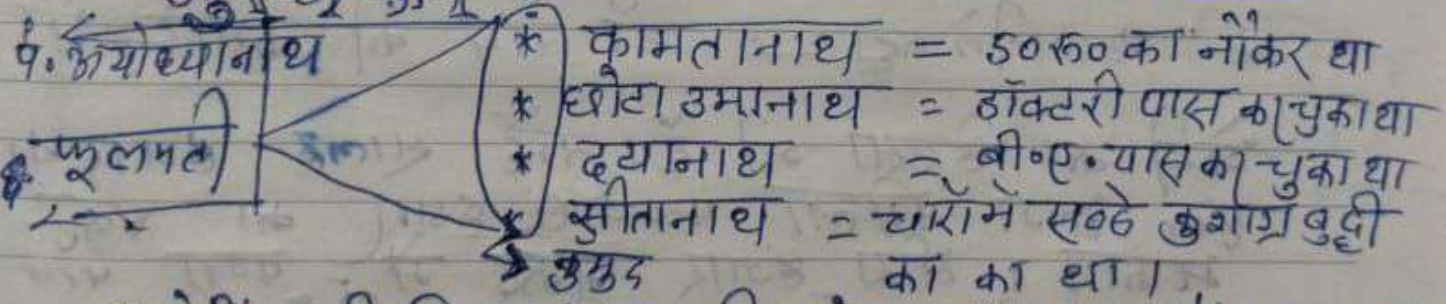 पं. अयोध्यानाथ
फूलमती
* कामतानाथ = ५०रु० का नौकर था
* छोटा उमानाथ = डॉक्टरी पास कर चुका था
* दयानाथ = बी०ए० पास कर चुका था
* सीतानाथ = चारों में सबसे कुशाग्र बुद्दी
कुमुद का का था।